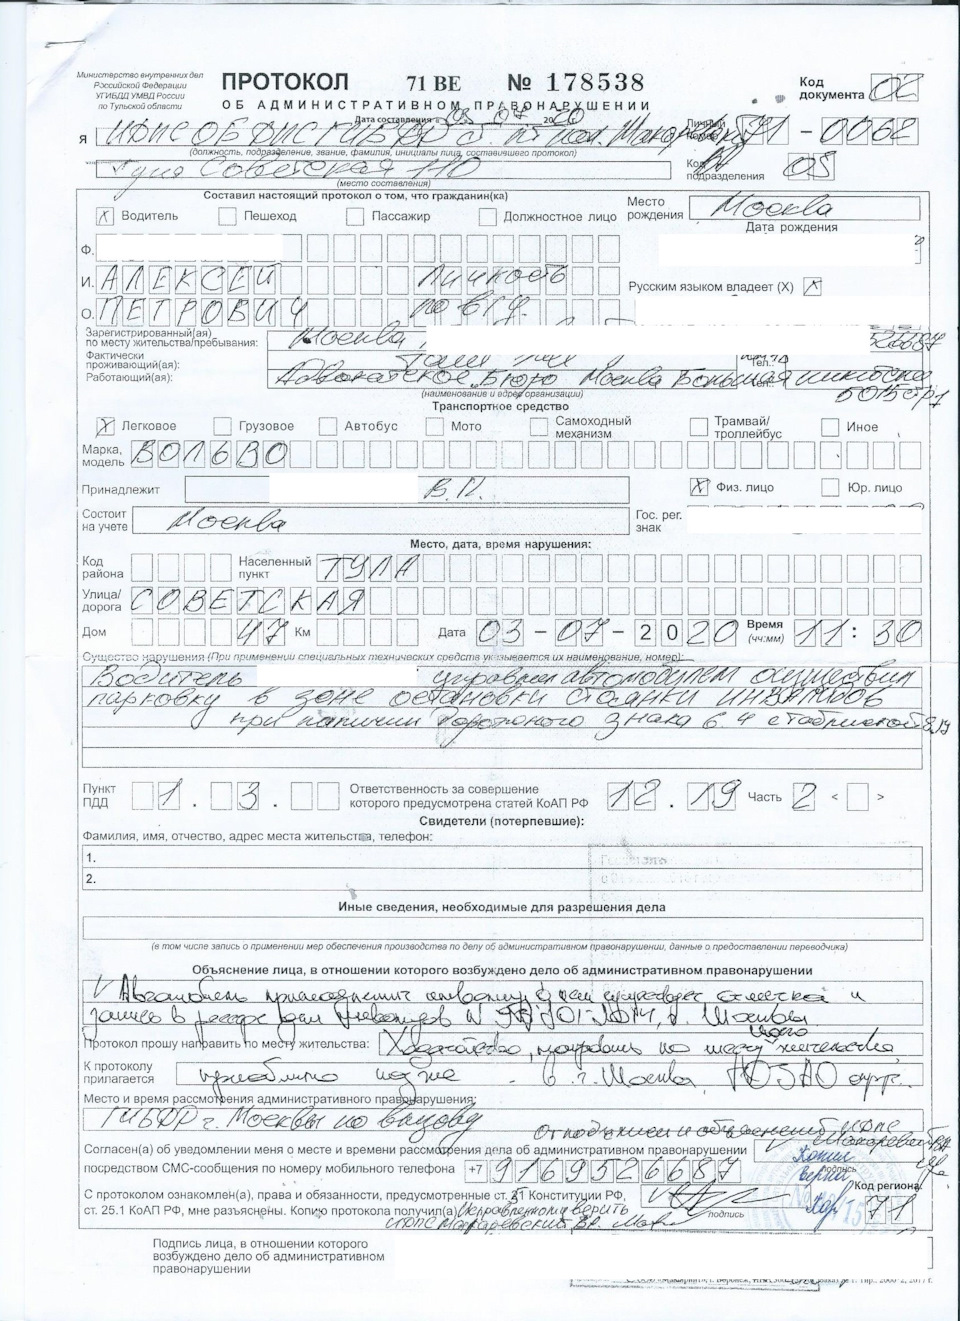 Министерство внутренних дел
Российской Федерации
УГИБДД УМВД России
по Тульской области
ПРОТОКОЛ 71 ВЕ № 178538
ОБ АДМИНИСТРАТИВНОМ ПРАВОНАРУШЕНИИ
Код документа 02
Дата составления « 03 » 07 2020
Я ИДПС ОБ ДПС ГИБДД
Личный 71 - 0062
(должность, подразделение, звание, фамилия, инициалы лица, составившего протокол)
Тула Советская 110
Код подразделения 05
(место составления)
Составил настоящий протокол о том, что гражданин(ка)
X Водитель Пешеход Пассажир Должностное лицо
Место рождения Москва
Дата рождения
Ф.
И. АЛЕКСЕЙ Личность
Русским языком владеет (X) X
О. ПЕТРОВИЧ по в/уд.
Зарегистрированный(ая)
по месту жительства/пребывания: Москва
Фактически
проживающий(ая): Там же
Тел.:
Работающий(ая): Адвокатское Бюро Москва Большая Никитская
50/5 стр 1
(наименование и адрес организации)
Транспортное средство
X Легковое Грузовое Автобус Мото Самоходный механизм Трамвай/троллейбус Иное
Марка, модель ВОЛЬВО
Принадлежит В.П.
X Физ. лицо Юр. лицо
Состоит на учете Москва
Гос. рег. знак
Место, дата, время нарушения:
Код района Населенный пункт ТУЛА
Улица/дорога СОВЕТСКАЯ
Дом 47 Км Дата 03 - 07 - 2020 Время (чч:мм) 11: 30
Существо нарушения (При применении специальных технических средств указывается их наименование, номер):
Водитель управлял автомобилем осуществил
парковку в зоне остановки стоянки инвалидов
при наличии дорожного знака 6.4 с табличкой 8.17
Пункт ПДД 1. 3. Ответственность за совершение
которого предусмотрена статей КоАП РФ 12. 19 Часть 2 < >
Свидетели (потерпевшие):
Фамилия, имя, отчество, адрес места жительства, телефон:
1.
2.
Иные сведения, необходимые для разрешения дела
(в том числе запись о применении мер обеспечения производства по делу об административном правонарушении, данные о предоставлении переводчика)
Объяснение лица, в отношении которого возбуждено дело об административном правонарушении
V Автомобиль принадлежит инвалиду
запись в реестре инвалидов г. Москвы
Протокол прошу направить по месту жительства: Ходатайство, направить по месту моего жительства,
К протоколу прилагается в г. Москва, ЮЗАО
Место и время рассмотрения административного правонарушения:
ГИБДД г. Москвы по вызову
От подписи и объяснений
Согласен(а) об уведомлении меня о месте и времени рассмотрения дела об административном правонарушении
посредством СМС-сообщения по номеру мобильного телефона +7 9169526687
подпись
Копия
верна
Код региона 71
С протоколом ознакомлен(а), права и обязанности, предусмотренные ст. 51 Конституции РФ,
ст. 25.1 КоАП РФ, мне разъяснены. Копию протокола получил(а) Исправленному верить
ИДПС Макаревский В.Р.
подпись
Подпись лица, в отношении которого
возбуждено дело об административном
правонарушении